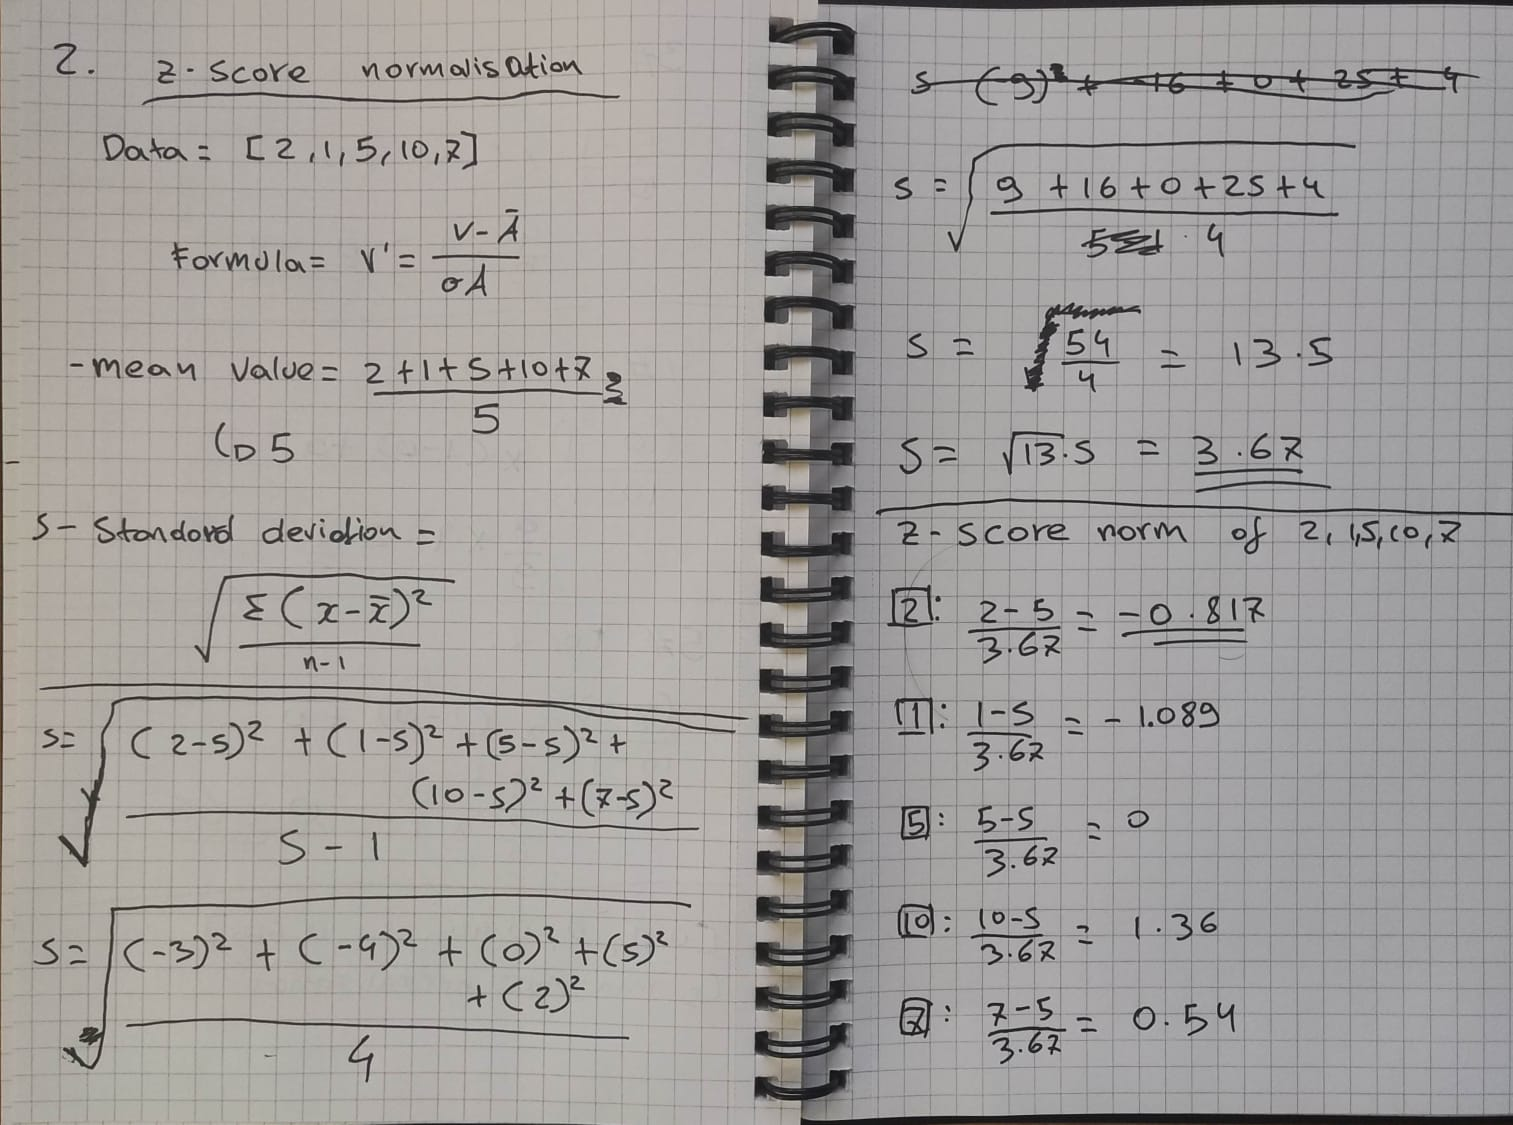 2. z-score normalisation
Data = [2,1,5,10,7]
Formula = v' = (v-Ā)/(σA)
-mean value = (2+1+5+10+7)/5
↳ 5
S - Standard deviation =
√(Σ(x-x̄)²/(n-1))
s = √(((2-5)² + (1-5)² + (5-5)² +
(10-5)² + (7-5)²)/(5-1))
s = √(((-3)² + (-4)² + (0)² + (5)²
+ (2)²)/4)
s (9)² + 16 + 0 + 25 + 4
s = √((9+16+0+25+4)/4)
s = 54/4 = 13.5
s = √13.5 = 3.67
z-score norm of 2,1,5,10,7
2: (2-5)/3.67 = -0.817
1: (1-5)/3.67 = -1.089
5: (5-5)/3.67 = 0
10: (10-5)/3.67 = 1.36
7: (7-5)/3.67 = 0.54